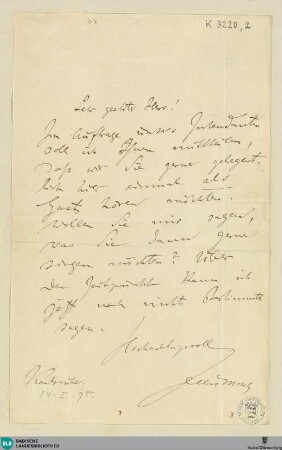 K 3220,2
Sehr geehrter Herr!
Im Auftrage unseres Intendanten
soll ich Ihnen mittheilen,
daß wir Sie gerne gelegent-
lich hier einmal als
Gast hören möchten.
Wollen Sie mir sagen,
was Sie dann gerne
singen möchten? Über
den Zeitpunkt kann ich
jetzt noch nicht Bestimmtes
sagen.
Hochachtungsvoll
Felix Mottl
Karlsruhe
14. I. 95.
BLB BADISCHE
LANDESBIBLIOTHEK
Baden-Württemberg